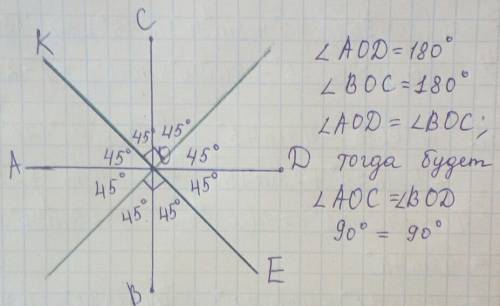 C
K
45° 45°
O
45° 45°
A
D
45° 45°
45° 45°
E
B
∠AOD = 180°
∠BOC = 180°
∠AOD = ∠BOC;
тогда будет
∠AOC = ∠BOD
90° = 90°